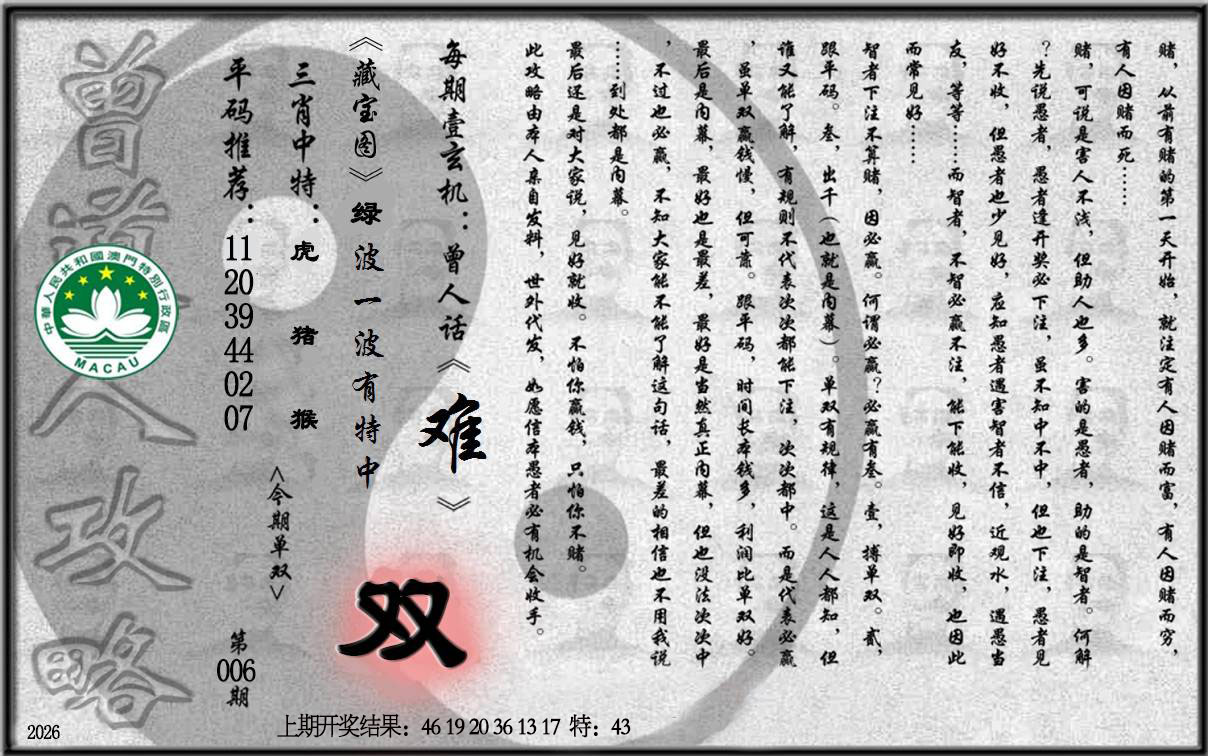 赌，从前有赌的第一天开始，就注定有人因赌而富，有人因赌而穷，
有人因赌而死……
赌，可说是害人不浅，但助人也多。害的是愚者，助的是智者。何解
？先说愚者，愚者逢开奖必下注，虽不知中不中，但也下注，愚者见
好不收，但愚者也少见好，应知愚者遇害智者不信，近观水，遇愚当
友，等等……而智者，不智必赢不注，能下能收，见好即收，也因此
而常见好……
智者下注不算赌，因必赢。何谓必赢？必赢有叁。壹，搏单双。贰，
跟平码。叁，出千（也就是内幕）。单双有规律，这是人人都知，但
谁又能了解，有规则不代表次次都能下注，次次都中。而是代表必赢
，虽单双赢钱慢，但可靠。跟平码，时间长本钱多，利润比单双好。
最后是内幕，最好也是最差，最好是当然真正内幕，但也没法次次中
，不过也必赢，不知大家能不能了解这句话，最差的相信也不用我说
……到处都是内幕。
最后还是对大家说，见好就收。不怕你赢钱，只怕你不赌。
此攻略由本人亲自发料，世外代发，如愿信本愚者必有机会收手。
每期壹玄机：曾人话《难》
《藏宝图》绿波一波有特中
双
三肖中特：虎 猪 猴
<今期单双>
平码推荐：11 20 39 44 02 07
第006期
曾道人攻略
中華人民共和國澳門特別行政區
MACAU
上期开奖结果：46 19 20 36 13 17 特：43
2026